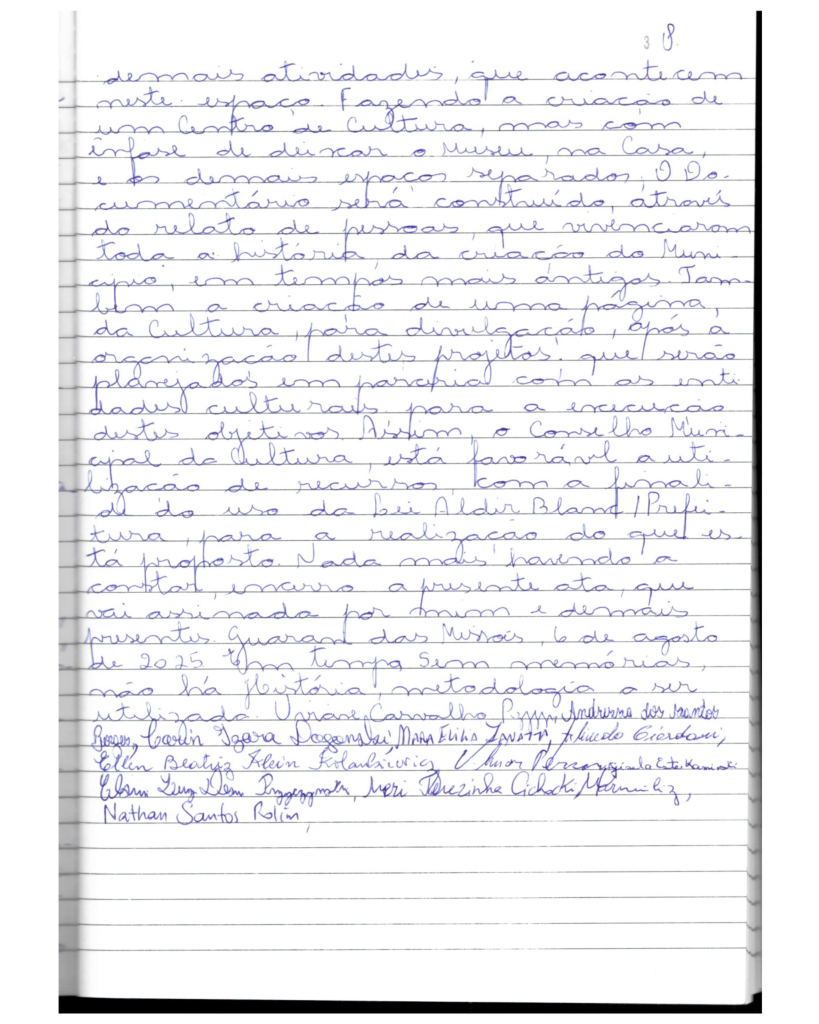 3
demais atividades, que acontecem
neste espaço. Fazendo a criação de
um Centro de Cultura, mas com
ênfase de deixar o Museu, na Casa,
e os demais espaços separados. O Do-
cumentário será construído, através
do relato de pessoas, que vivenciaram
toda a história, da criação do Muni-
cípio, em tempos mais antigos. Tam-
bém a criação de uma página,
da Cultura, para divulgação, após a
organização destes projetos, que serão
planejados em parceria com as enti
dades culturais para a execução
destes objetivos. Assim, o Conselho Muni-
cipal da Cultura, está favorável a uti-
lização de recursos, com a finali-
de do uso da Lei Aldir Blanc/Prefei-
tura, para a realização do que es-
tá proposto. Nada mais havendo a
constar, encerro a presente ata, que
vai assinada por mim e demais
presentes. Guarani das Missões, 6 de agosto
de 2025 Em tempo Sem memórias,
não há História, metodologia a ser
utilizada. Viviane Carvalho Andressa dos Santos
Borges, Carlin Izara MARA ELISA ZANATTA, Giordani,
Ellen Beatriz Klein Kaminski
Luiz Neri Terezinha Cichocki
Nathan Santos Rolim,